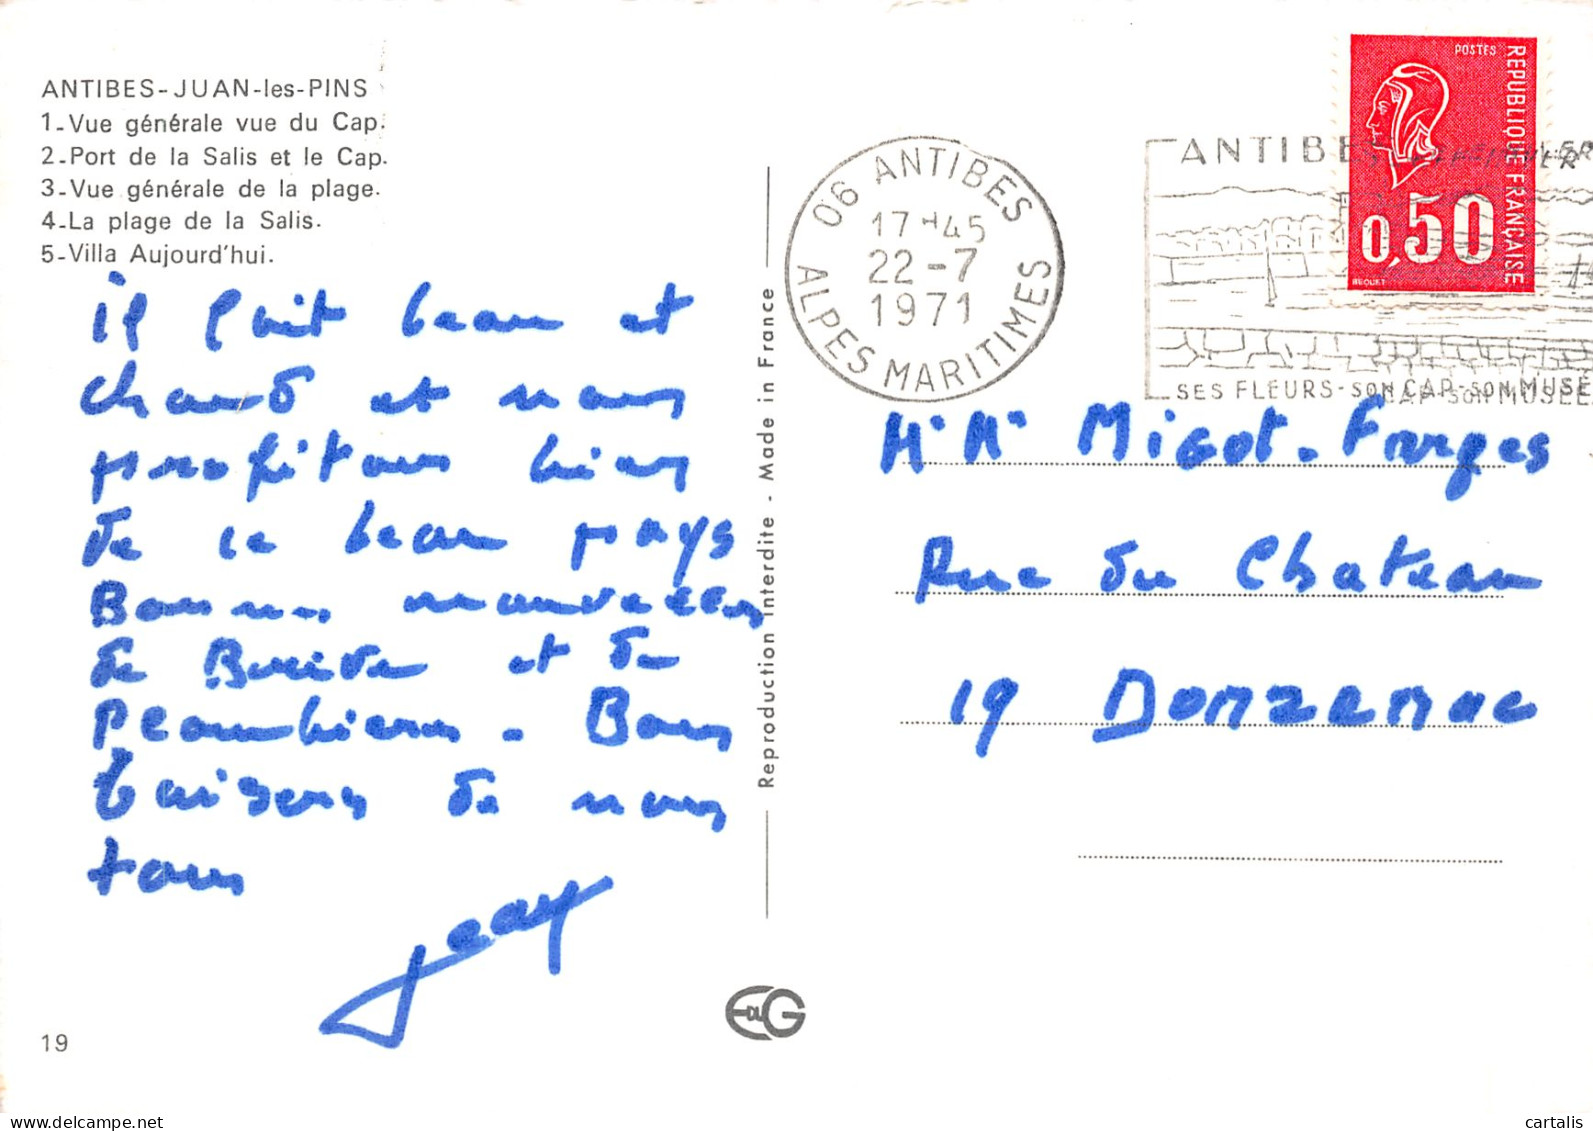 ANTIBES-JUAN-les-PINS
1-Vue générale vue du Cap.
2-Port de la Salis et le Cap.
3-Vue générale de la plage.
4-La plage de la Salis.
5-Villa Aujourd'hui.
il fait beau et
chaud et nous
profitons bien
de ce beau pays
Bonnes nouvelles
de Brive et de
- Bons
baisers de nous
tous
Jean
19
Reproduction interdite - Made in France
EdG
06 ANTIBES
17H45
22-7
1971
ALPES MARITIMES
ANTIBES
SES FLEURS-SON CAP-SON MUSÉE
POSTES
REPUBLIQUE FRANÇAISE
0,50
BEQUET
Mr Mr Migot-Farges
Rue du Chateau
19 DONZENAC
cartalis